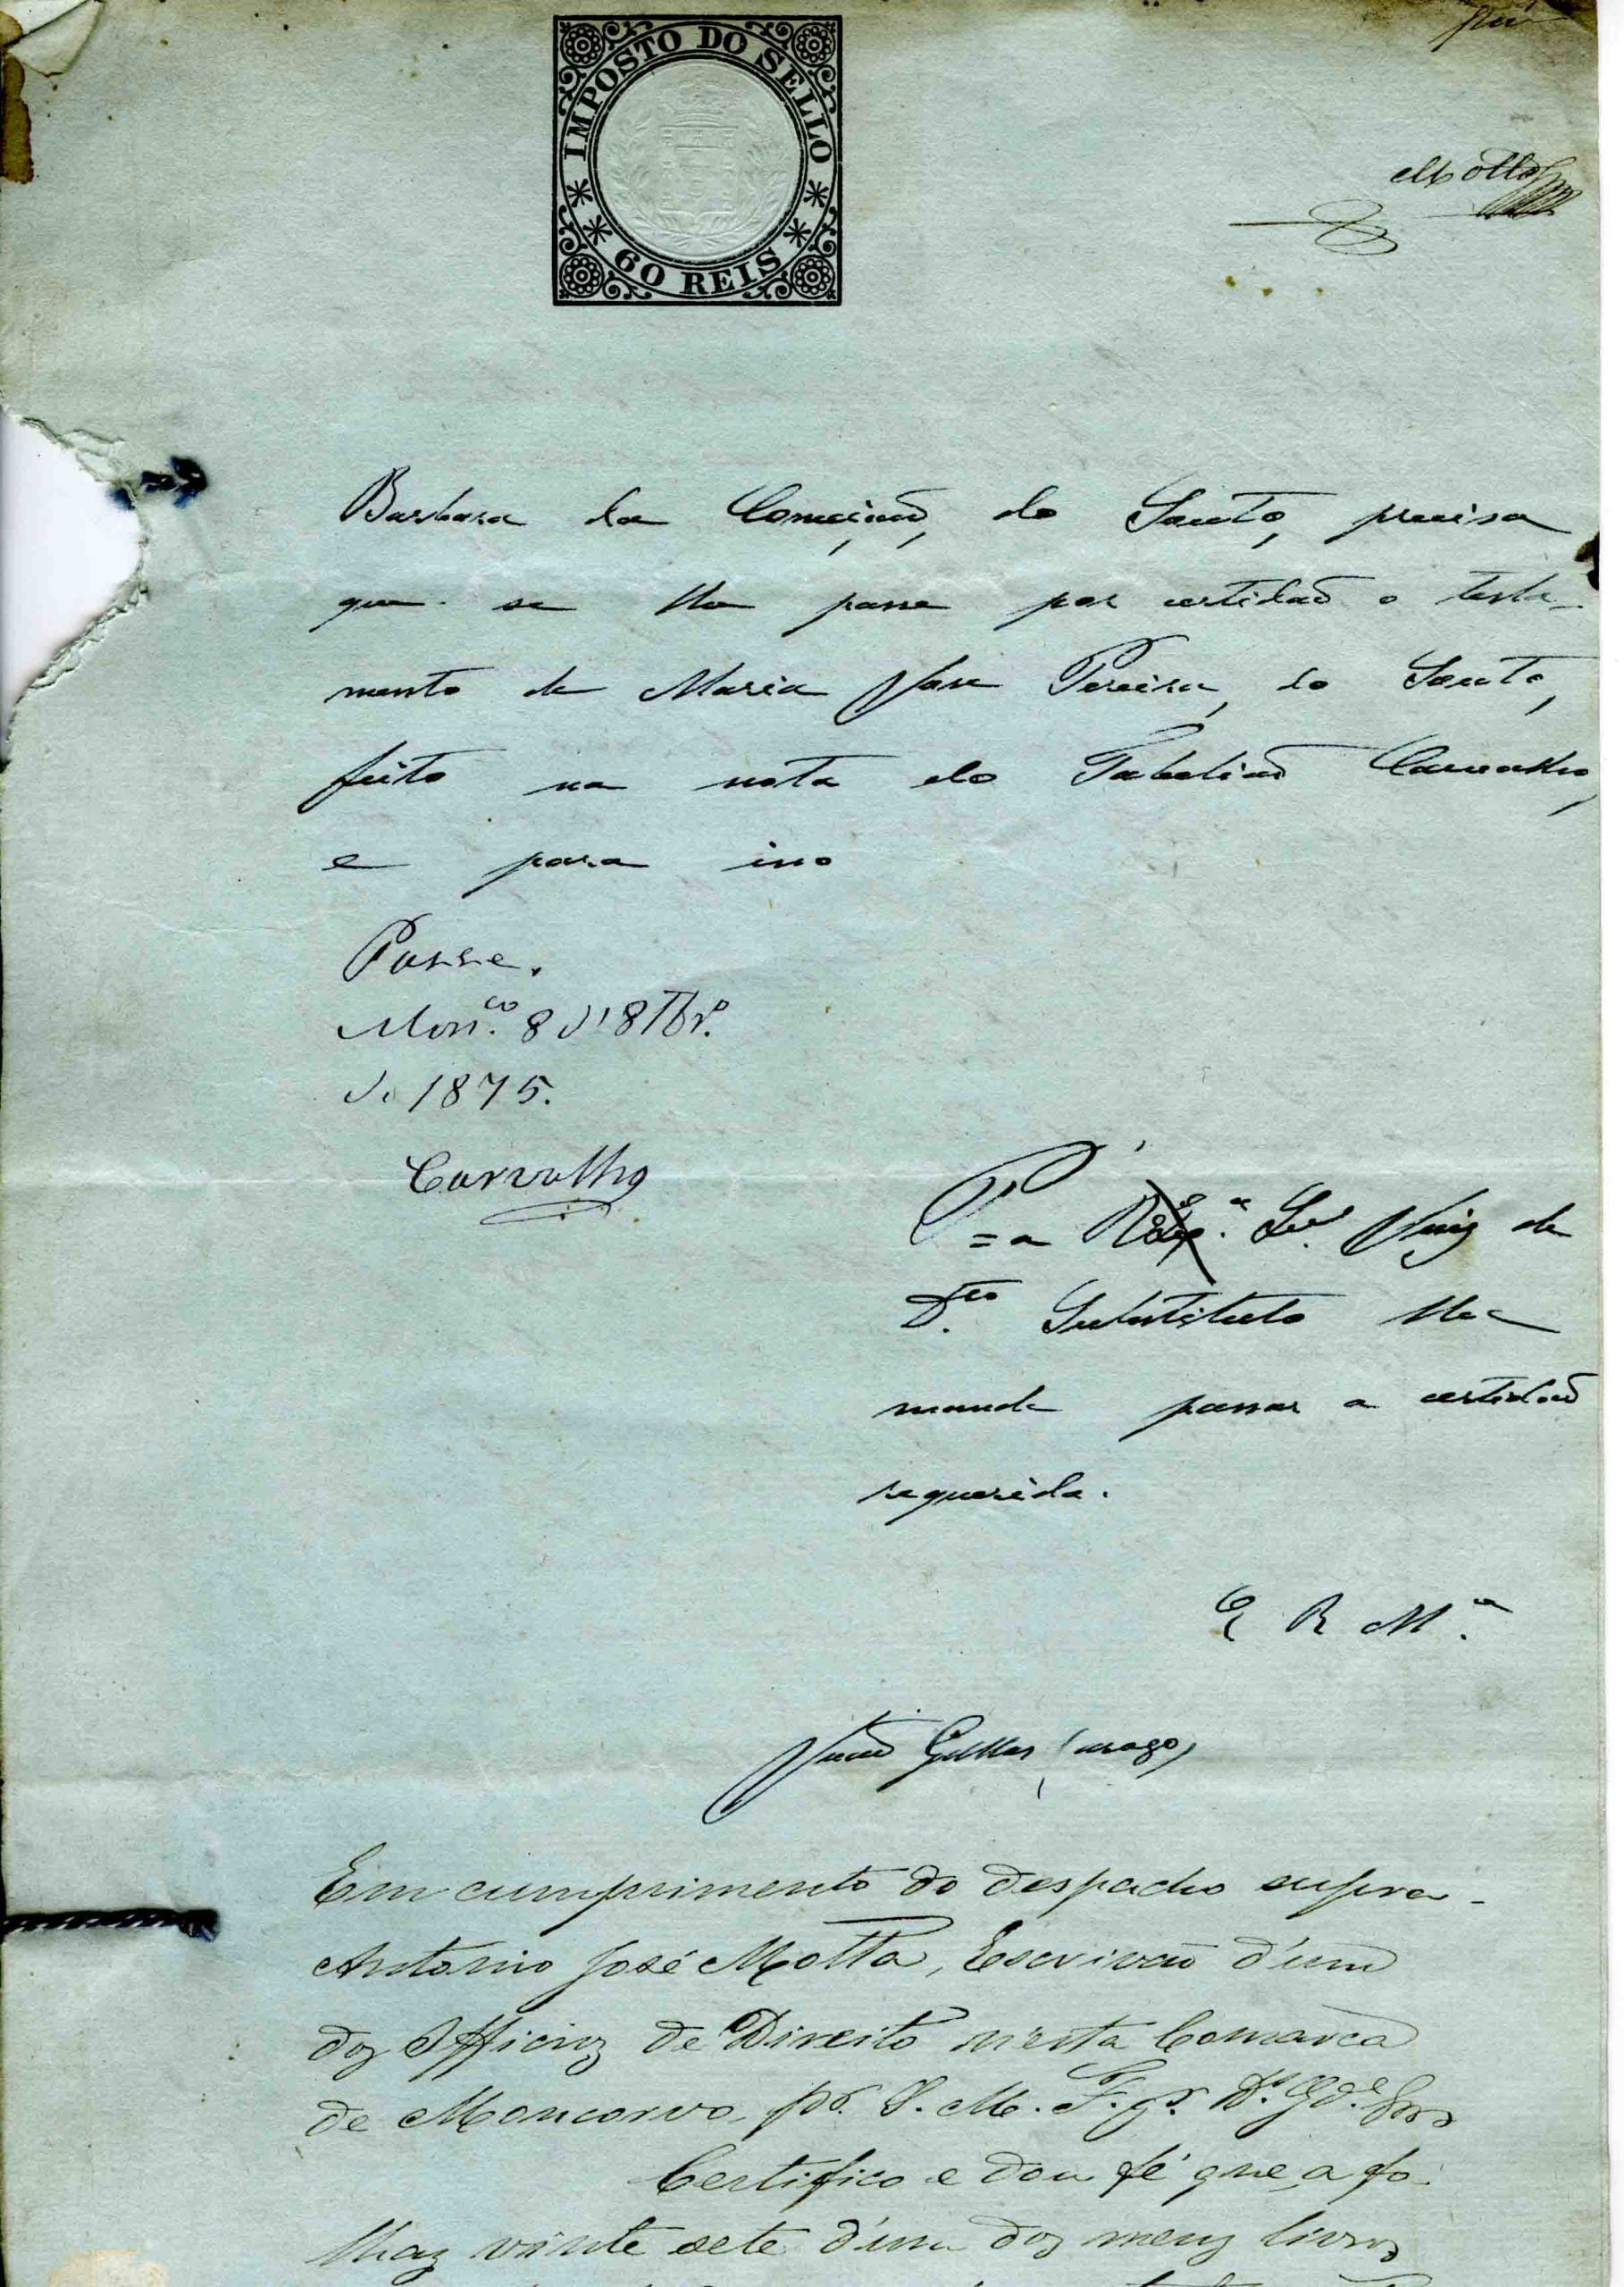 IMPOSTO DO SELLO
60 REIS
Motta
Barbara da Conceição, do Souto, precisa
que se lhe passe por certidaõ o testa-
mento de Maria Jose Pereira, do Souto,
feito na nota do Tabeliaõ Carvalho,
e para isso
Passe.
Mon.co 8 d'8Tbr.o
de 1875.
Carvalho
P = a Sr. Juiz de
D.to Substituto lhe
mande passar a certidaõ
requerida.
E R M.ce
Em cumprimento do despacho supra -
Antonio José Motta, Escrivaõ d'um
dos Officios de Direito n'esta Comarca
de Moncorvo, pr. S. M. F. q. D.s G.de
Certifico e dou fé que, a fo-
lhas vinte sete d'um dos meus livros